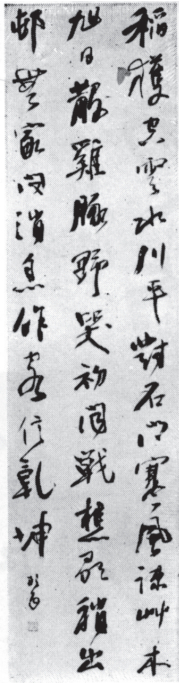 稻穫空雲水川平對石門寒風疎艸木
旭日散雞豚野哭初聞戰樵歌稍出
邨無家問消息作客信乾坤